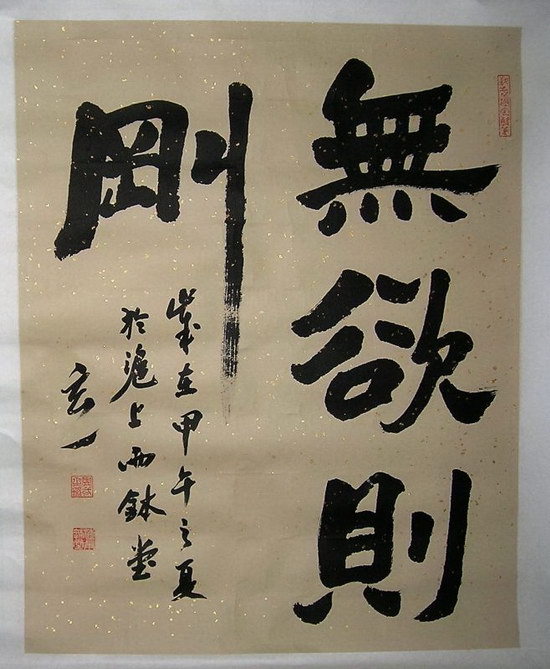 無欲則
剛
歲在甲午之夏
於滬上兩鉢堂
玄一